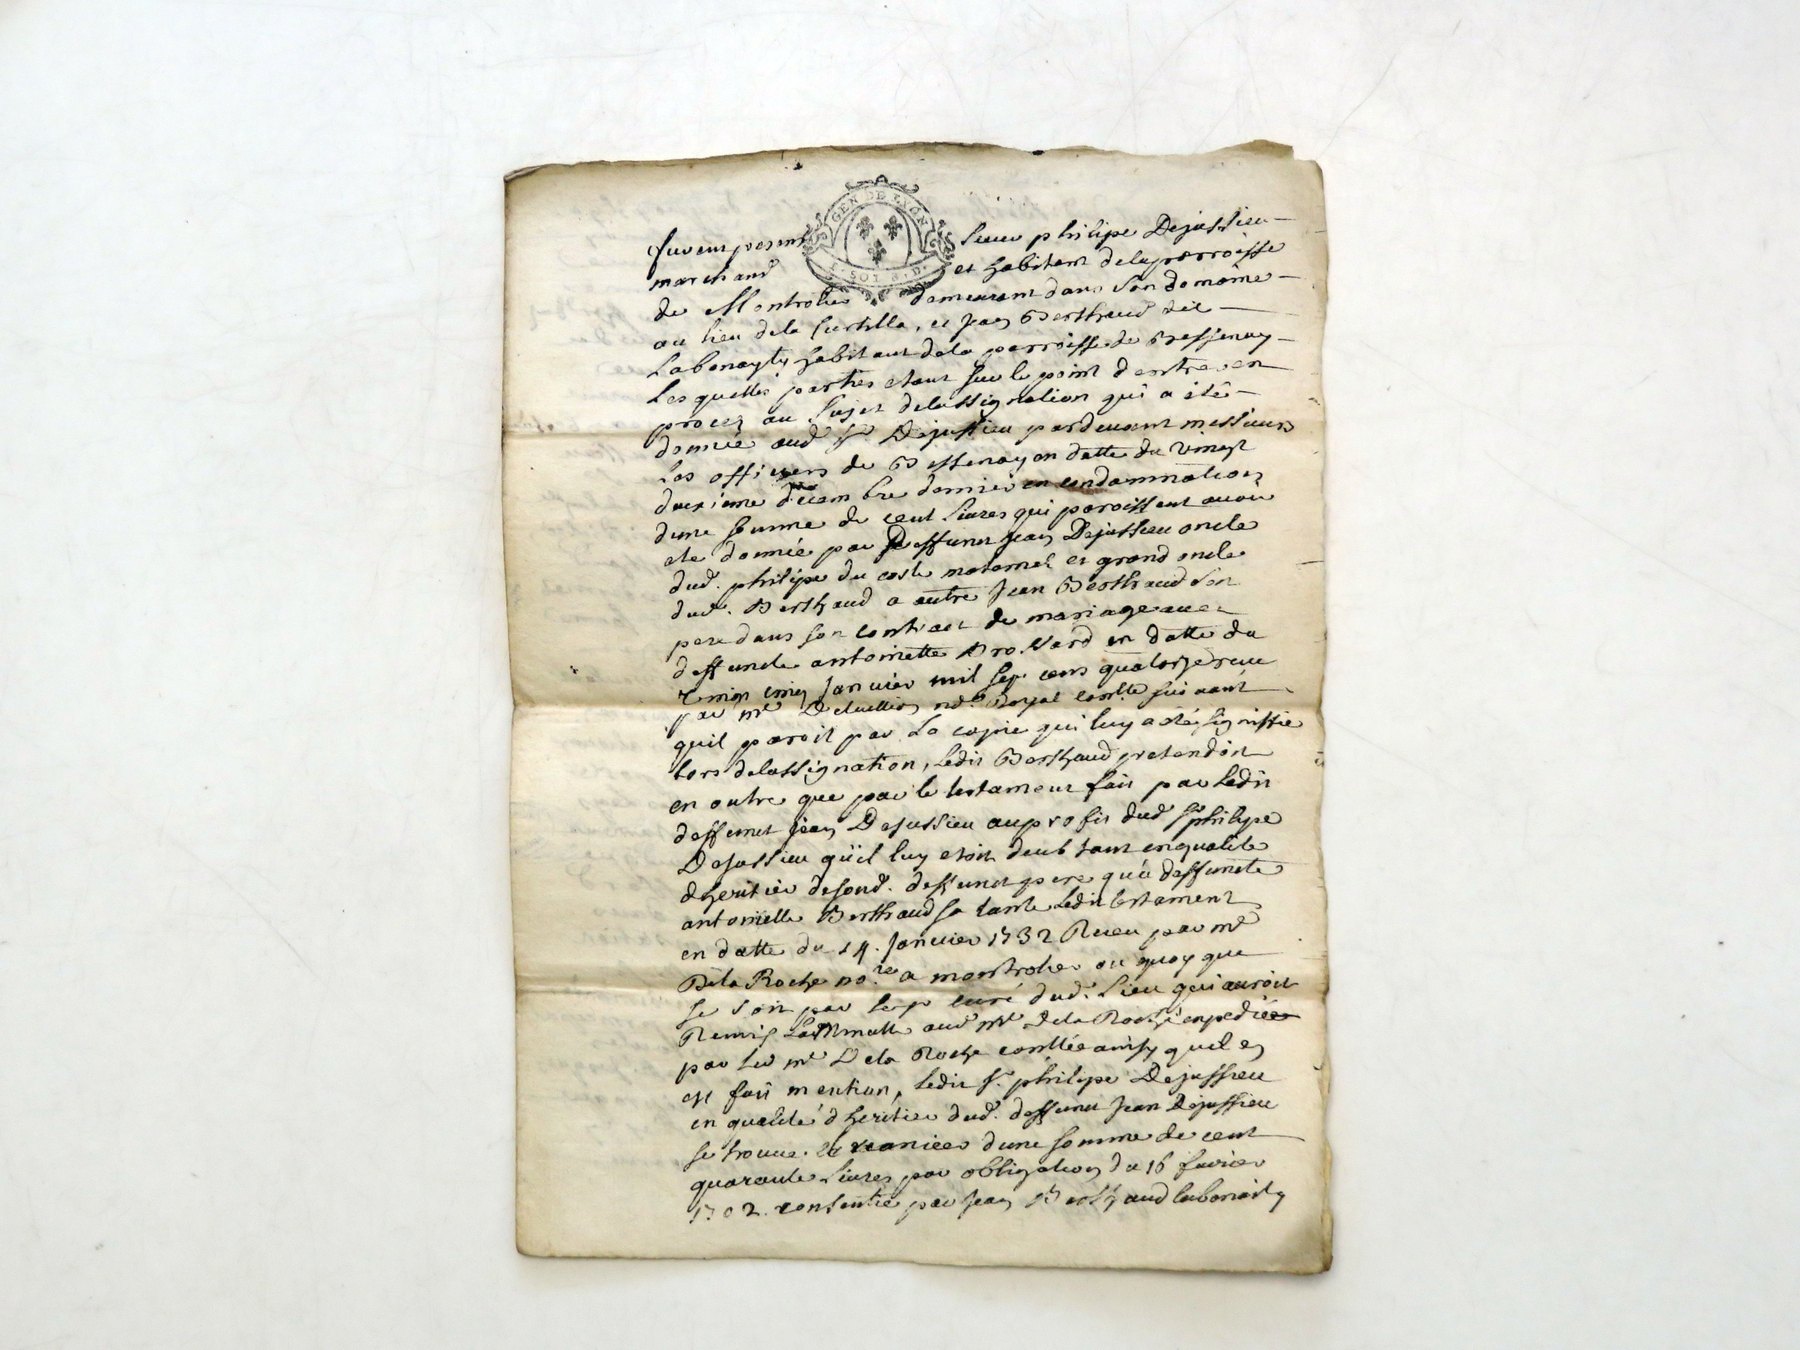 GEN DE LYON
Furent presents sieur philipe Dejussieu
marchand et habitant de la parroisse
de Montrotier demeurant dans son domaine
au lieu de la Curtilla, et Jean Berthaud dit
Labonayty habitant de la parroisse de Bessenay
Lesquelles parties etant sur le point d'entrer en
procez au sujet delassignation qui a été
donnée aud. sr Dejussieu pardevant messieurs
les officiers de Bessenay en datte du vingt
deuxieme decembre dernier en condamnation
dune somme de cent livres qui paroissent avoir
ete donnée par deffunct Jean Dejussieu oncle
dud. philipe du coste maternel et grand oncle
dud. Berthaud a autre Jean Berthaud son
pere dans son contract de mariage avec
deffuncte antoinette Brossard en datte du
cinq Janvier mil sept cens quatorze receu
par me no.re Royal suivant
quil paroit par La copie qui luy a été signiffié
lors delassignation, Ledit Berthaud pretendoit
en outre que par le testament fait par Ledit
deffunct jean Dejussieu au profit dud. Sr philipe
Dejussieu qüil luy etoit deub tant en qualité
dheritier de sond. deffunct pere qu'a deffuncte
antoinette Berthaud sa tante Ledit testament
en datte du 14. Janvier 1732 Receu par me
Dela Roche no.re a montrotier ou quoy que
ce soit par le sr curé dud. Lieu qui auroit
Remis La minutte aud. me Dela Roche expediée
par led. me Dela Roche contlée ainsy quil en
est fait mention, Ledit sr. philipe Dejussieu
en qualité d'heritier dud. deffunct Jean Dejussieu
se trouve creancier d'une somme de cent
quarante livres par obligation du 16 fevrier
1702. consentie par Jean Berthaud labonaity